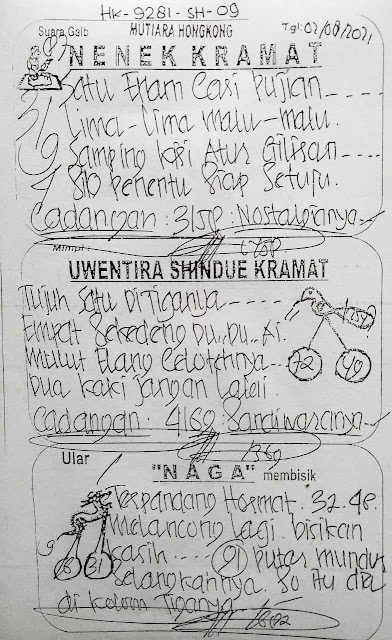 HK-9281-SH-09
Suara Gaib
MUTIARA HONGKONG
Tgl: 02/08/2021
NENEK KRAMAT
Satu Enam Casi Pujian
Lima-Lima malu-malu.
Samping kopi Atur Giliran
810 Penentu Siap Setuju.
Cadangan: 3/58: Nostalgianya
Mimpi:
UWENTIRA SHINDUE KRAMAT
Tujuh Satu Ditiganya
Empat Sekodeng DU..DU..Ai.
Mulut Elang Celotehnya
Dua kaki jangan Lalai.
Cadangan. 4/69 Sandiwaranya
72 49
Ular
"NAGA"
membisik
Terpandang Hormat. 32.48.
Melancong Lagi. bisikan
kasih 91 putar mundur
Selangkahnya. 80 itu dia
di kolom Tiganya
31